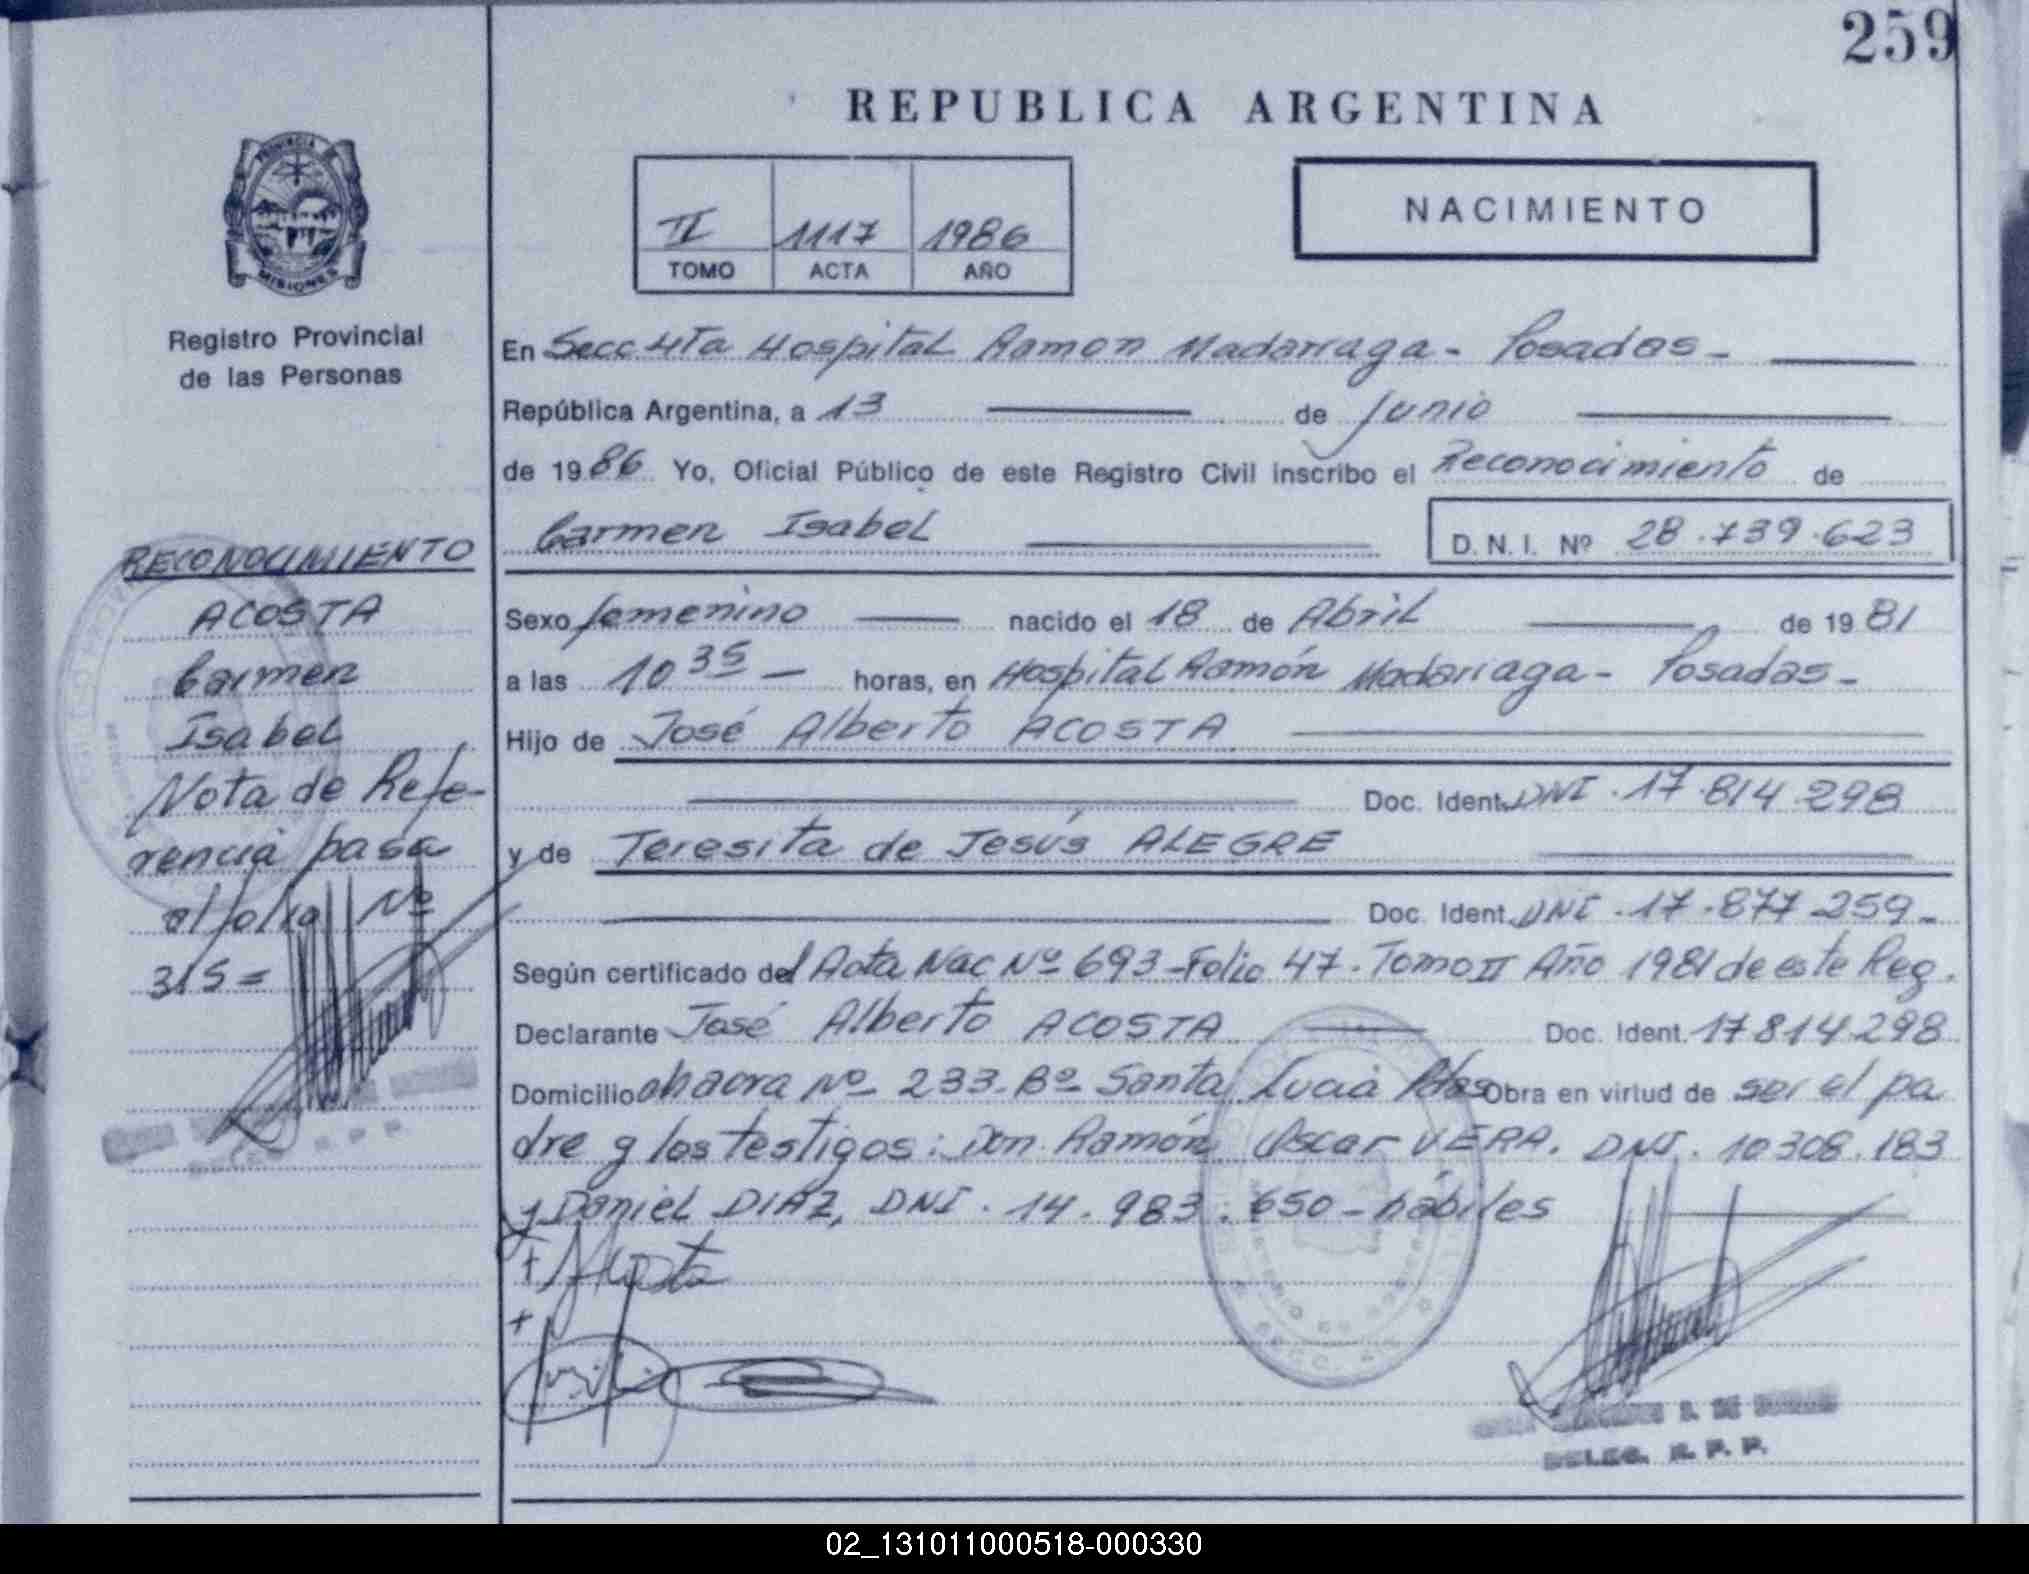 259
REPUBLICA ARGENTINA
II 1117 1986
TOMO ACTA AÑO
NACIMIENTO
PROVINCIA DE
MISIONES
Registro Provincial
de las Personas
RECONOCIMIENTO
ACOSTA
Carmen
Isabel
Nota de Refe-
rencia pasa
al folio Nº
315=
En Secc 4Ta Hospital Ramon Madarriaga - Posadas -
República Argentina, a 13 de Junio
de 1986 Yo, Oficial Público de este Registro Civil inscribo el Reconocimiento de
Carmen Isabel D. N. I. Nº 28.739.623
Sexo femenino nacido el 18 de Abril de 1981
a las 10 35 - horas, en Hospital Ramón Madariaga - Posadas -
Hijo de José Alberto ACOSTA
Doc. Ident. DNI . 17.814 298
y de Teresita de Jesús ALEGRE
Doc. Ident. DNI . 17.877 259-
Según certificado del Acta Nac Nº 693-Folio 47. Tomo II Año 1981 de este Reg.
Declarante José Alberto ACOSTA Doc. Ident. 17814298
Domicilio chacra Nº 233. Bº Santa Lucia Pdas Obra en virtud de ser el pa
dre y los testigos: Don Ramón Oscar VERA. DNI. 10308.183
y Daniel DIAZ, DNI. 14.983.650 - hábiles
+ Acosta
+
DELEG. R. P. P.
02_131011000518-000330